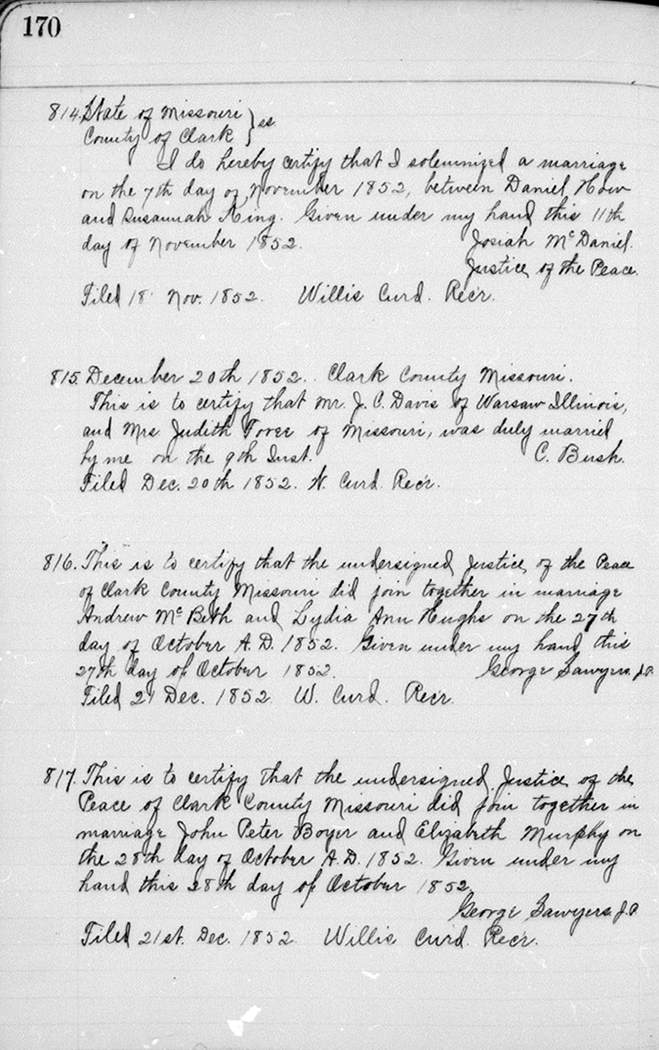 170
814. State of Missouri } ss.
County of Clark
I do hereby certify that I solemnized a marriage
on the 7th day of November 1852, between Daniel How
and Susannah King. Given under my hand this 11th
day of November 1852. Josiah McDaniel.
Justice of the Peace.
Filed 18 Nov. 1852. Willis Curd. Recr.
815. December 20th 1852. Clark County Missouri.
This is to certify that Mr. J. C. Davis of Warsaw Illinois,
and Mrs Judith Foree of Missouri, was duly married
by me on the 9th Inst. C. Bush.
Filed Dec. 20th 1852. W. Curd Recr.
816. This is to certify that the undersigned Justice of the Peace
of Clark County Missouri did join together in marriage
Andrew McBeth and Lydia Ann Hughs on the 27th
day of October A.D. 1852. Given under my hand this
27th day of October 1852. George Sawyers J.P.
Filed 21 Dec. 1852 W. Curd. Recr.
817. This is to certify that the undersigned Justice of the
Peace of Clark County Missouri did join together in
marriage John Peter Boyer and Elizabeth Murphy on
the 28th day of October A.D. 1852. Given under my
hand this 28th day of October 1852
George Sawyers J.P.
Filed 21st. Dec. 1852 Willis Curd Recr.